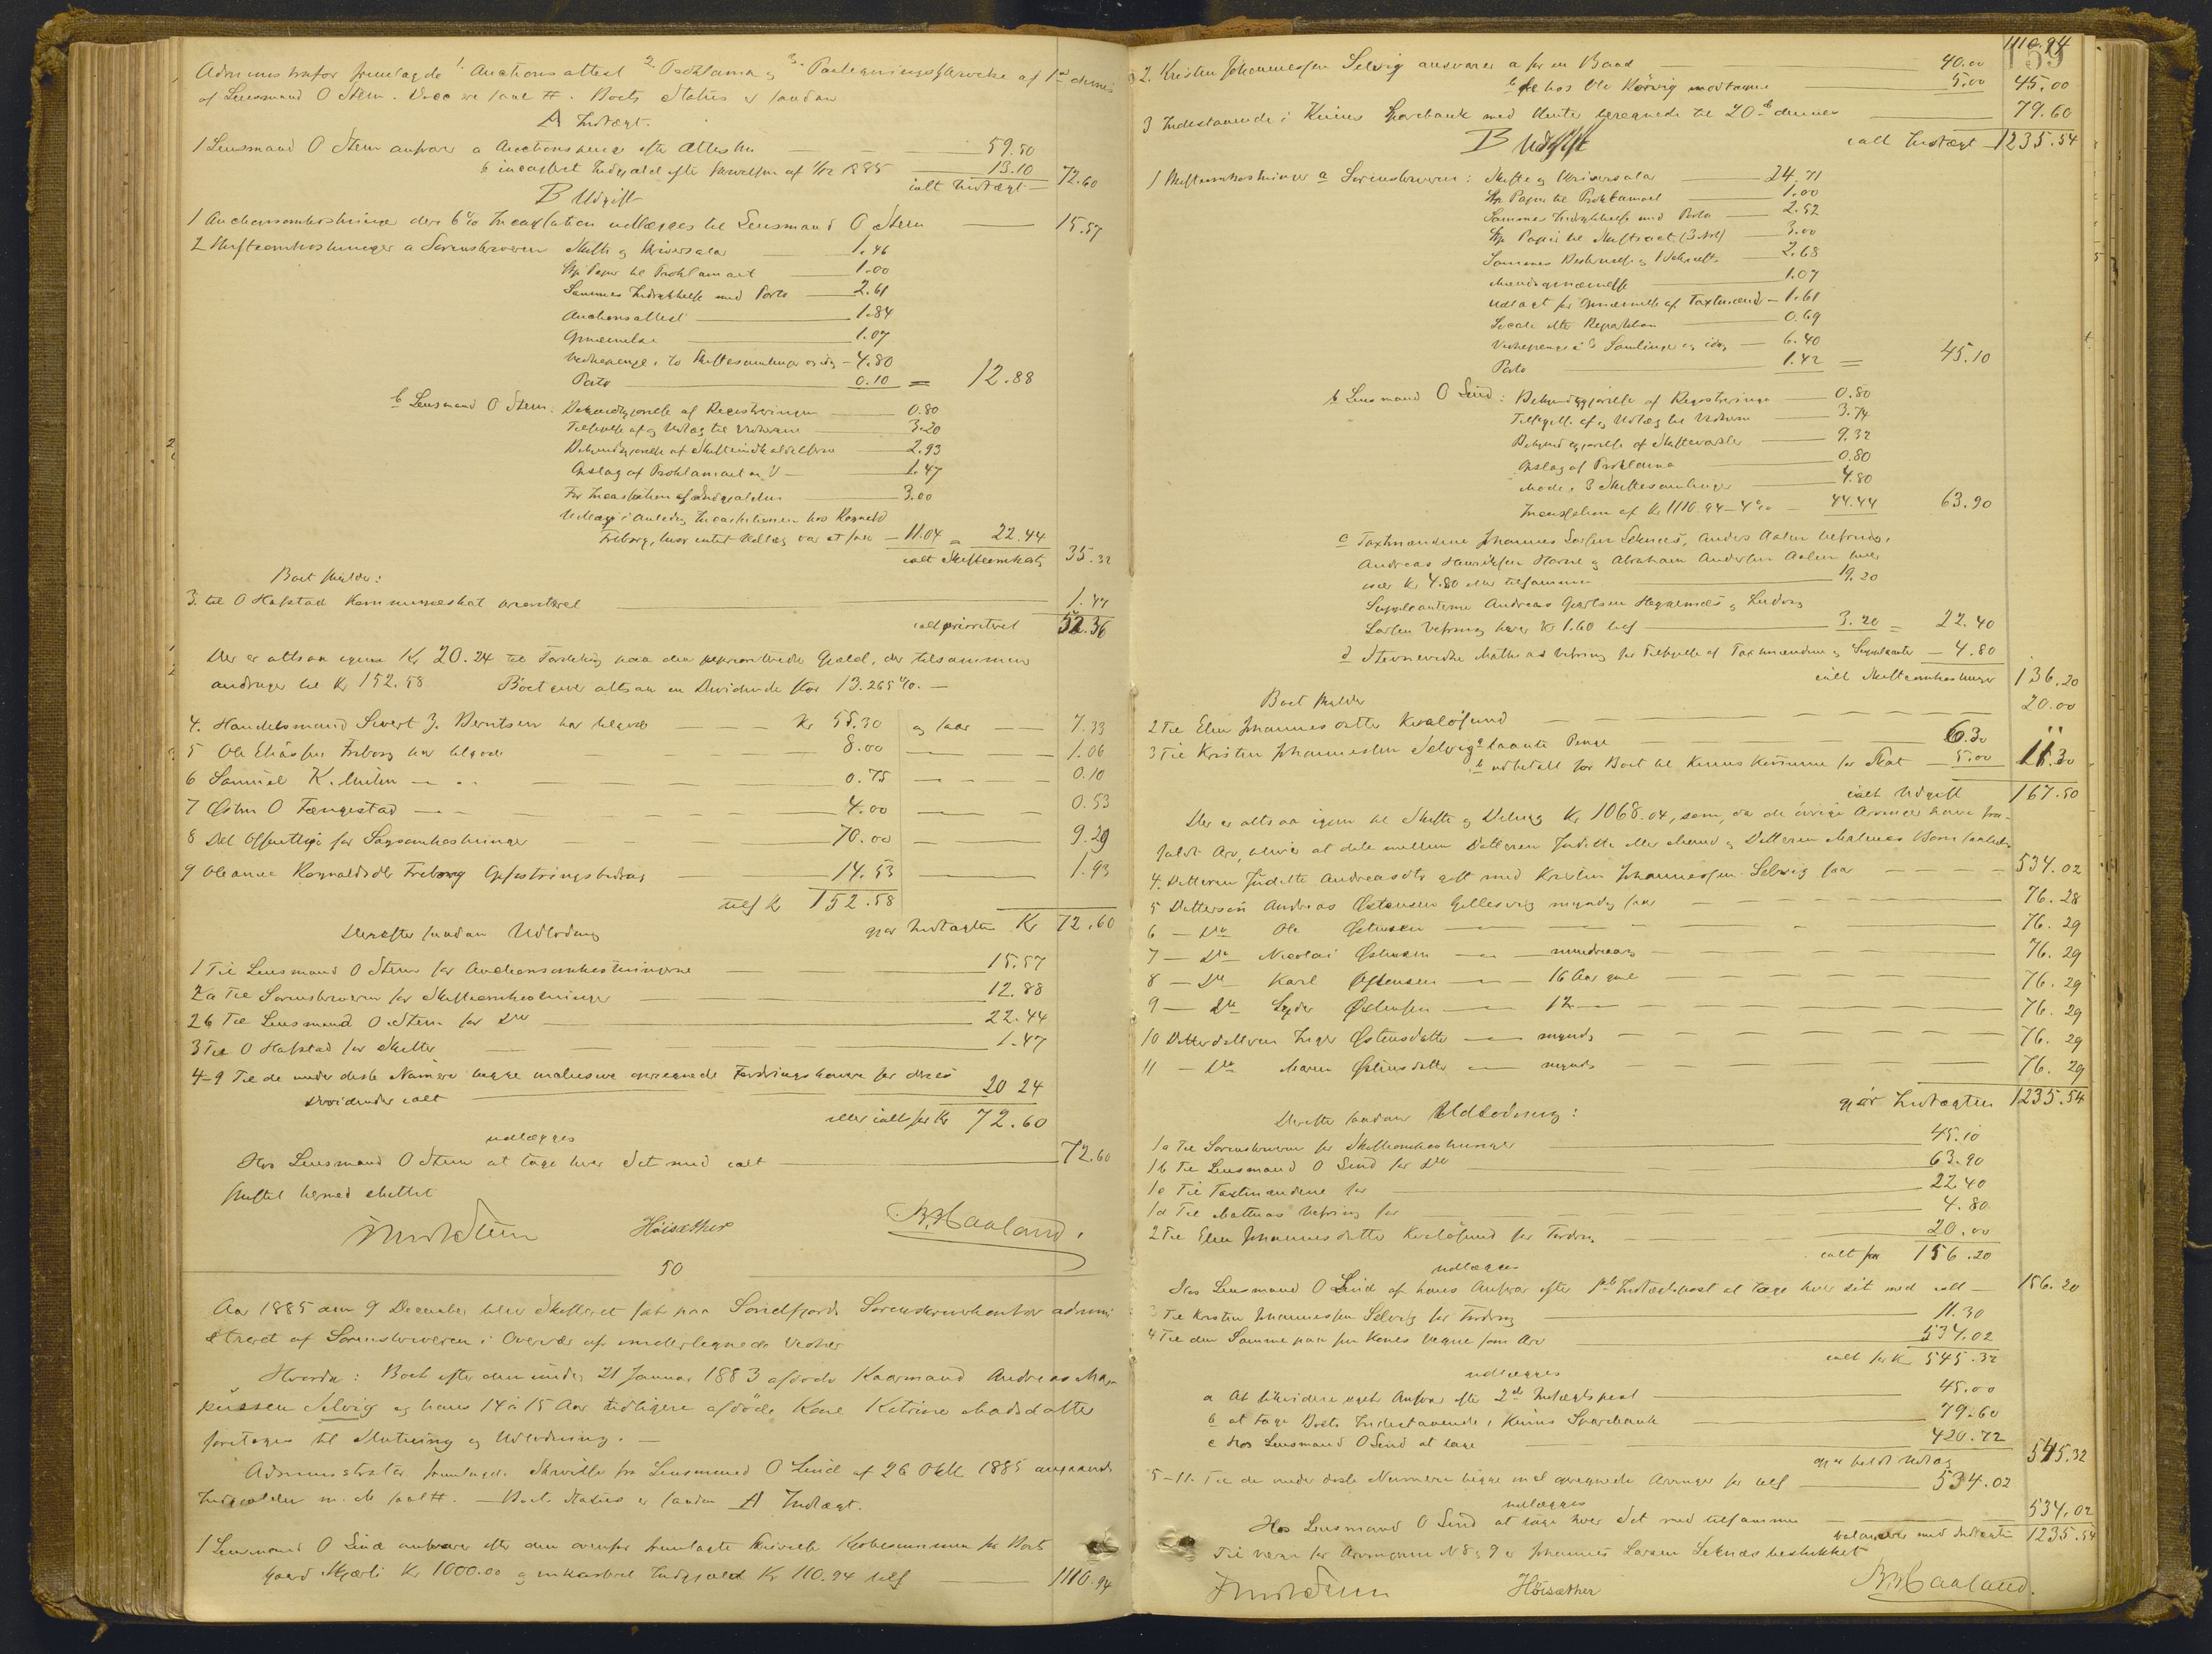 Administrator fremlagde 1. Auctionsattest 2. Proklama og 3. Skrivelse af 1ste dennes
af Lensmand O Stem. Boets Status er saadan
A Indtægt.
1 Lensmand O Stem ansvarer a Auctionspenge efter Attesten 59.50
b incasseret Indgjæld efter Skrivelsen af 1/12 1885 13.10 72.60
ialt Indtægt
B Udgift
1 Auctionsomkostninger der 6% Incassation udlægges til Lensmand O Stem 15.57
2 Skifteomkostninger a Sorenskriveren Skifte og Skriversalær 1.46
Stp Papir til Proklamaet 1.00
Sammes Indrykkelse med Porto 2.61
Auctionsattest 1.84
Opnævnelse 1.07
Vidnepenge i to Skiftesamlinger og idag 4.80
Porto 0.10 = 12.88
b Lensmand O Stem: Bekjendtgjørelse af Registreringen 0.80
Tilsigelse af og Udlæg til Vidnerne 3.20
Bekjendtgjørelse af Skifteindkaldelserne 2.93
Opslag af Proklamaet 1.47
For Incassation af Indgjælden 3.00
Udlæg i Anledn. Incassationen hos Ragnald
Friborg, hvor intet Udlæg var at faa 11.04 = 22.44
ialt Skifteomkostn 35.32
Boet skylder:
3. til O Hafstad Kommuneskat prioriteret 1.47
ialt prioriteret 52.36
Der er altsaa igjen Kr 20.24 til Fordeling paa den uprioriterede Gjæld, der tilsammen
andrager til Kr 152.58 Boet giver altsaa en Dividende stor 13.265%.
4. Handelsmand Sivert J. Berntsen har tilgode Kr 55.30 og faar 7.33
5 Ole Eliassen Friborg har tilgode 8.00 1.06
6 Samuel K. 0.75 0.10
7 Østen O Fængestad 4.00 0.53
8 Det Offentlige for Sagsomkostninger 70.00 9.29
9 Oleanna Ragnaldsdtr Friborg Opfostringsbidrag 14.53 1.93
tils Kr 152.58
gjør Indtægten Kr 72.60
Derefter saadan Udlodning
1 Til Lensmand O Stem for Auctionsomkostningerne 15.57
2a Til Sorenskriveren for Skifteomkostninger 12.88
2b Til Lensmand O Stem for Do 22.44
3 Til O Hafstad for Skatter 1.47
4-9 Til de under disse Numere begge inclusive opregnede Fordringshavere for deres
Dividender ialt 20 24
eller ialt for Kr 72.60
udlægges
Hos Lensmand O Stem at tage hver Sit med ialt 72.60
Skiftet hermed sluttet
Høisæther
B. Haaland.
50
Aar 1885 den 9 December blev Skifteret sat paa Søndfjords Sorenskriverkontor admini
streret af Sorenskriveren i Overvær af undertegnede Vidner
Hvorda: Boet efter den under 21 Januar 1883 afdøde Kaarmand Andreas Mag-
nussen Selvig og hans 14 à 15 Aar tidligere afdøde Kone Katrine Madsdatter
foretoges til Slutning og Udlodning.
Administrator fremlagde Skrivelse fra Lensmand O Lind af 26 Oktb 1885 angaaende
Indgjælden m. M. Boets Status er saadan A Indtægt.
1 Lensmand O Lind ansvarer efter den ovenfor fremlagte Skrivelse Kjøbesummen for Boets
Gaard Kr 1000.00 og inkasseret Indgjæld Kr 110.94 tils 1110.94
1110.94
159
2. Kristen Johannessen Selvig ansvarer a for en Baad 40.00
b hos Ole Kørvig modtagne 5.00 45.00
3 Indestaaende i Kinns Sparebank med Renter beregnede til 20de dennes 79.60
ialt Indtægt 1235.54
B Udgift
1 Skifteomkostninger a Sorenskriveren: Skifte og Skriversalær 24.71
Stp Papir til Proklamaet 1.00
Sammes Indrykkelse med Porto 2.52
Stp Papir til Skifteact (3 Ark) 3.00
Sammes Beskrivelse og 2.68
Mændsopnævnelse 1.07
Udlagt for Opnævnelse af Taxtmænd 1.61
0.69
Vidnepenge i 3 Samlinger og idag 6.40
Porto 1.42 = 45.10
b Lensmand O Lind: Bekjendtgjørelse af Registreringen 0.80
Tilsigelse af og Udlæg til Vidnerne 3.74
Bekjendtgjørelse af Skiftevarsler 9.32
Opslag af Proklama 0.80
Møde i 3 Skiftesamlinger 4.80
Incassation af Kr 1110.94 - 4% 44.44 63.90
c Taxtmændene Johannes Larsen Seknæs, Anders Aalen Vefring,
Andreas Henriksen Horne og Abraham Andersen Aalen hver
især Kr 4.80 eller tilsammen 19.20
Suppleanterne Andreas og Ludvig
Larsen Vefring hver Kr 1.60 tils 3.20 = 22.40
d Stevnevidne Mathias Vefring for Tilsigelse af Taxtmændene og Suppleanter 4.80
ialt Skifteomkostninger 136.20
Boet skylder
2 Til Elen Johannesdatter Kvaløsund 20.00
3 Til Kristen Johannessen Selvig a laante Penge 6.30
b udbetalt for Boet til Kinns Kommune for Skat 5.00 11.30
ialt Udgift 167.50
Der er altsaa igjen til Skifte og Deling Kr 1068.04, som, da de øvrige Arvinger have fra-
faldt Arv, bliver at dele mellem Datteren Judithe eller Mand og Datteren Malenes Børn saaledes
4. Datteren Judithe Andreasdtr gift med Kristen Johannessen Selvig faar 534.02
5 Dattersøn Andreas Østensen Gillesvig myndig faar 76.28
6 Do Ole Østensen 76.29
7 Do Nicolai Østensen mindreaarig 76.29
8 Do Karl Østensen 16 Aar gml 76.29
9 Do Lyder Østensen 12 76.29
10 Datterdatteren Inger Østensdatter myndig 76.29
11 Do Maren Østensdatter myndig 76.29
gjør Indtægten 1235.54
Derefter saadan Udlodning:
1a Til Sorenskriveren for Skifteomkostninger 45.10
1b Til Lensmand O Lind for Do 63.90
1c Til Taxtmændene for 22.40
1d Til Mathias Vefring for 4.80
2 Til Elen Johannesdatter Kvaløsund for Fordring 20.00
ialt for 156.20
udlægges
Hos Lensmand O Lind af hans Ansvar efter 1ste Indtægtspost at tage hver sit med ialt 156.20
3 Til Kristen Johannessen Selvig for Fordring 11.30
4 Til den Samme paa sin Kones Vegne som Arv 534.02
ialt for Kr 545.32
udlægges
a At likvidere eget Ansvar efter 2den Indtægtspost 45.00
b at tage Boets Indestaaende i Kinns Sparebank 79.60
c Hos Lensmand O Lind at tage 420.72
gjør fuldt Udlæg 545.32
5-11. Til de under disse Numere begge incl opregnede Arvinger for tils 534.02
udlægges
Hos Lensmand O Lind at tage hver Sit med tilsammen 534.02
balancerer med Indtægten 1235.54
Til Værge for Arvingerne N 8 og 9 er Johannes Larsen Seknæs beskikket
Høisæther
B. Haaland.